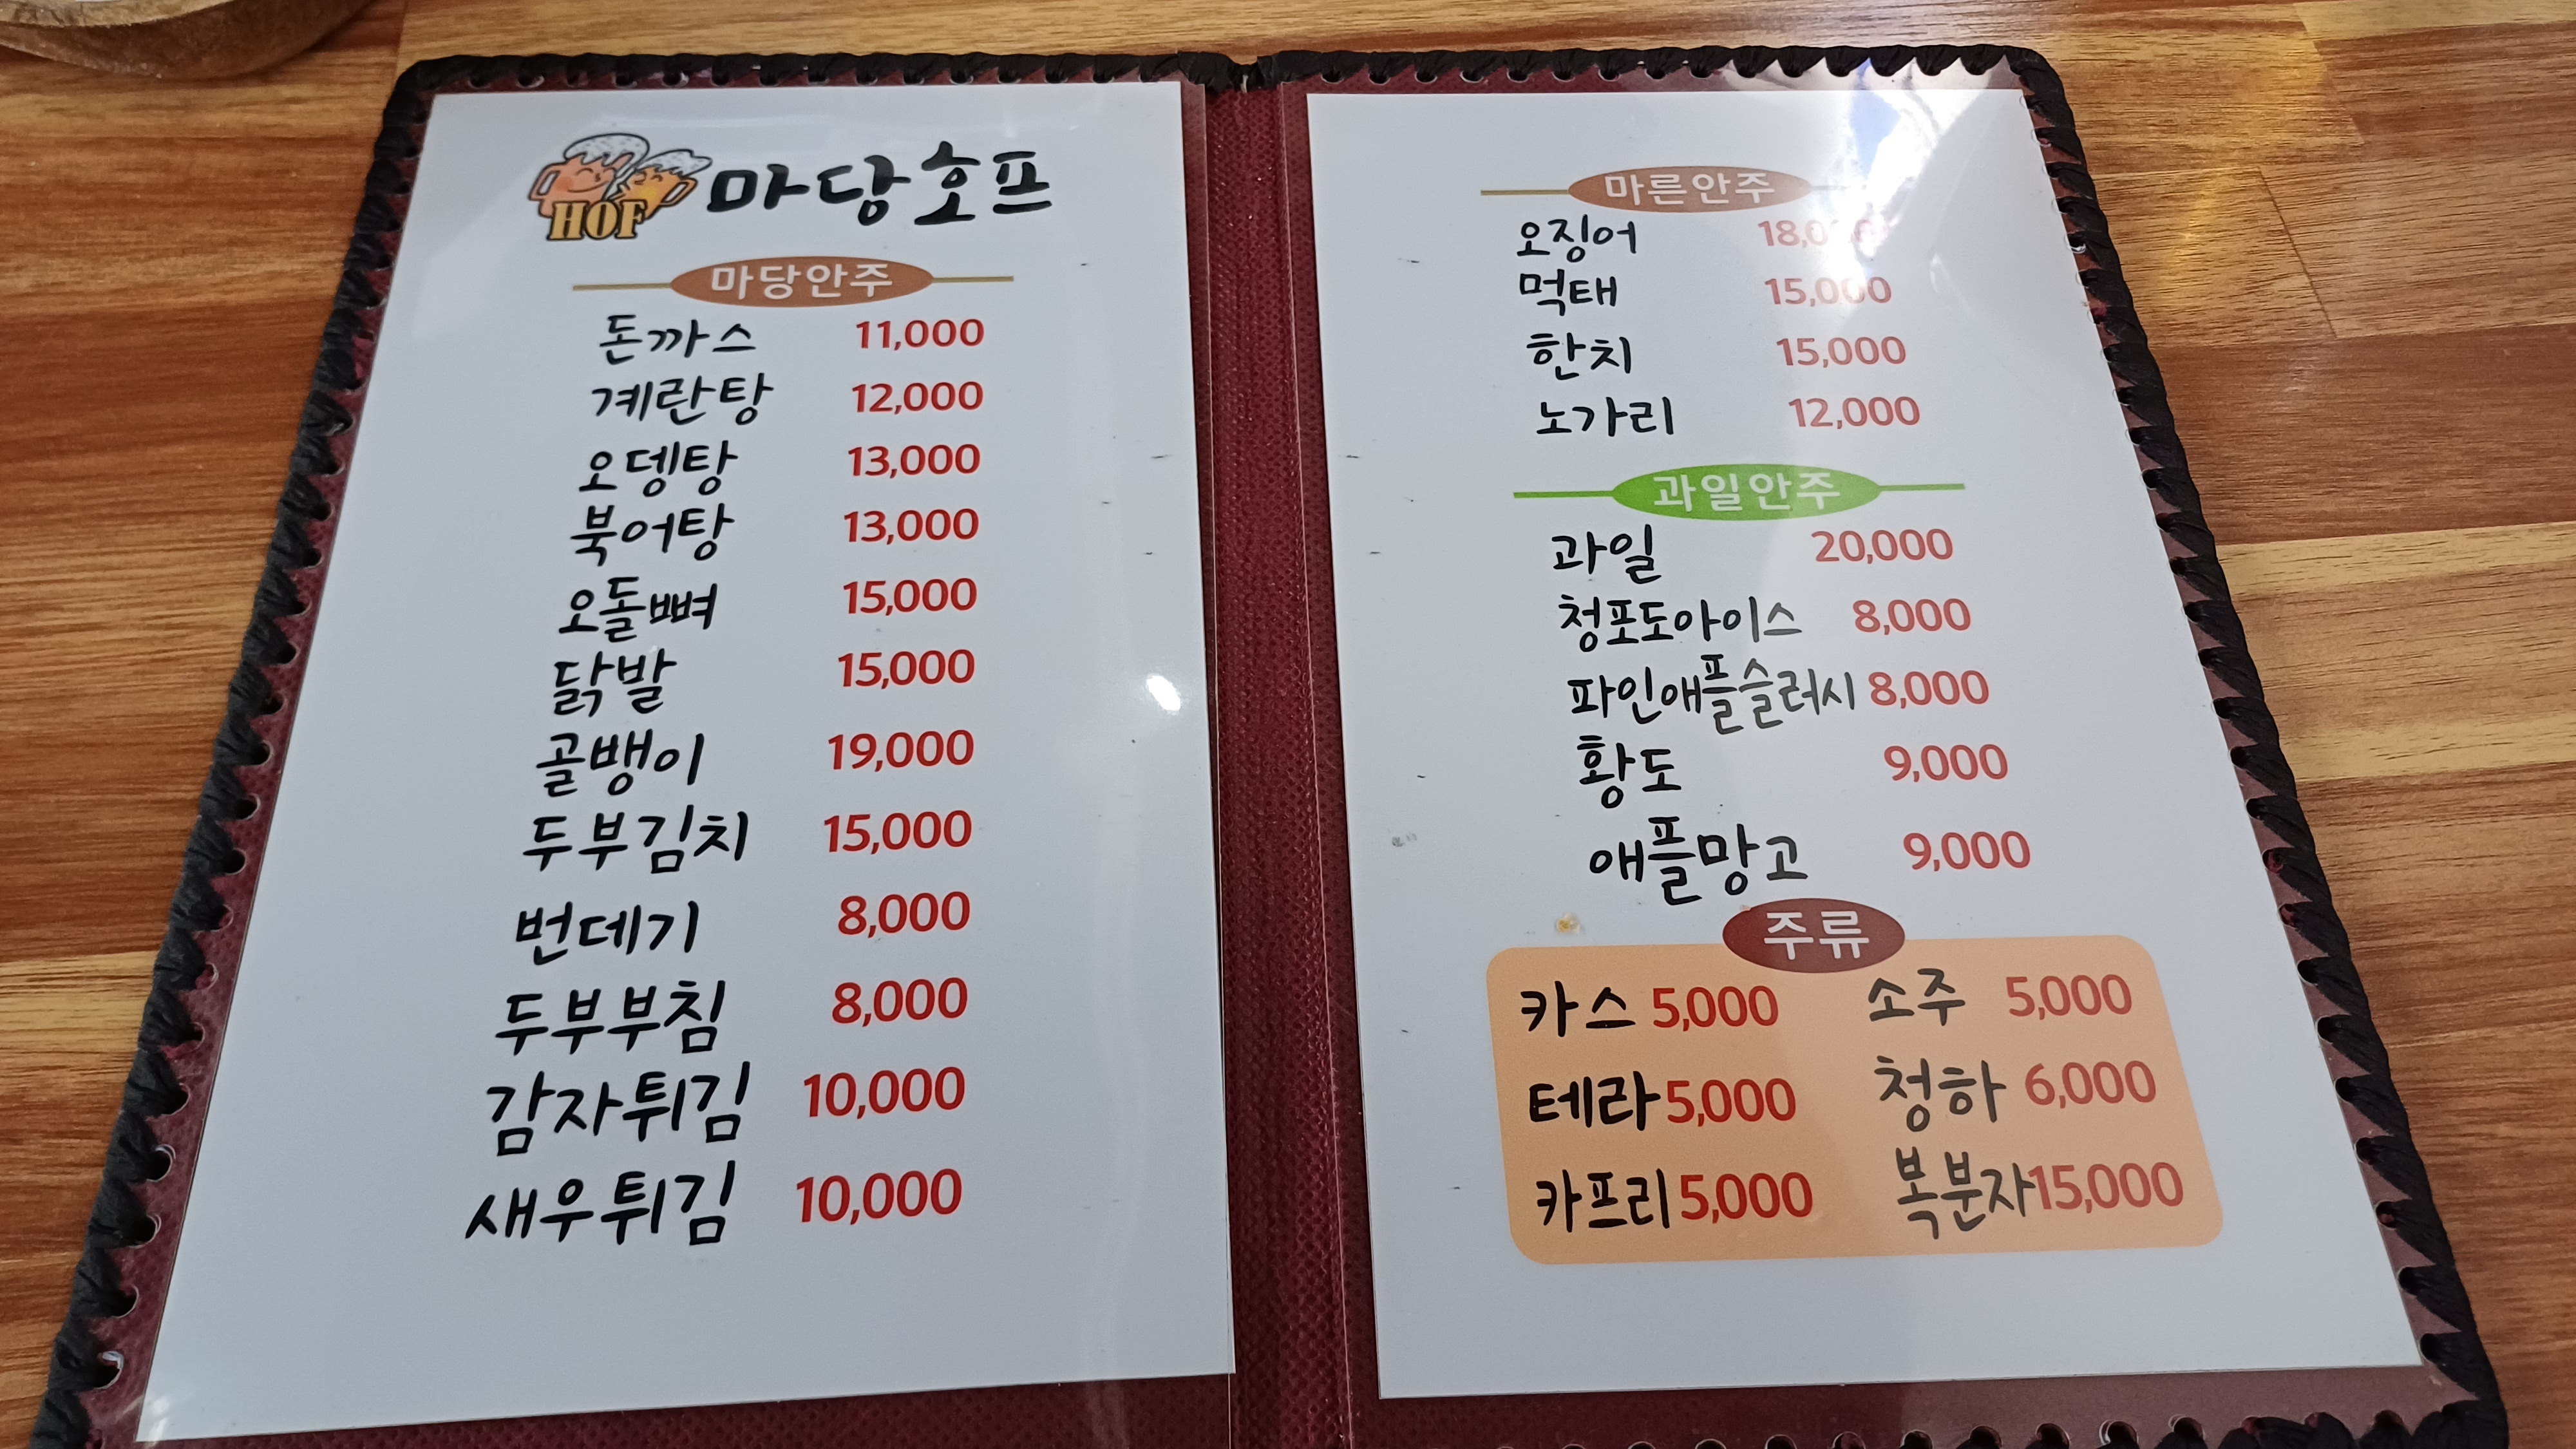 HOF 마당호프
마당안주
돈까스 11,000
계란탕 12,000
오뎅탕 13,000
북어탕 13,000
오돌뼈 15,000
닭발 15,000
골뱅이 19,000
두부김치 15,000
번데기 8,000
두부부침 8,000
감자튀김 10,000
새우튀김 10,000
마른안주
오징어
먹태 15,000
한치 15,000
노가리 12,000
과일안주
과일 20,000
청포도아이스 8,000
파인애플슬러시 8,000
황도 9,000
애플망고 9,000
주류
카스 5,000 소주 5,000
테라 5,000 청하 6,000
카프리 5,000 복분자 15,000